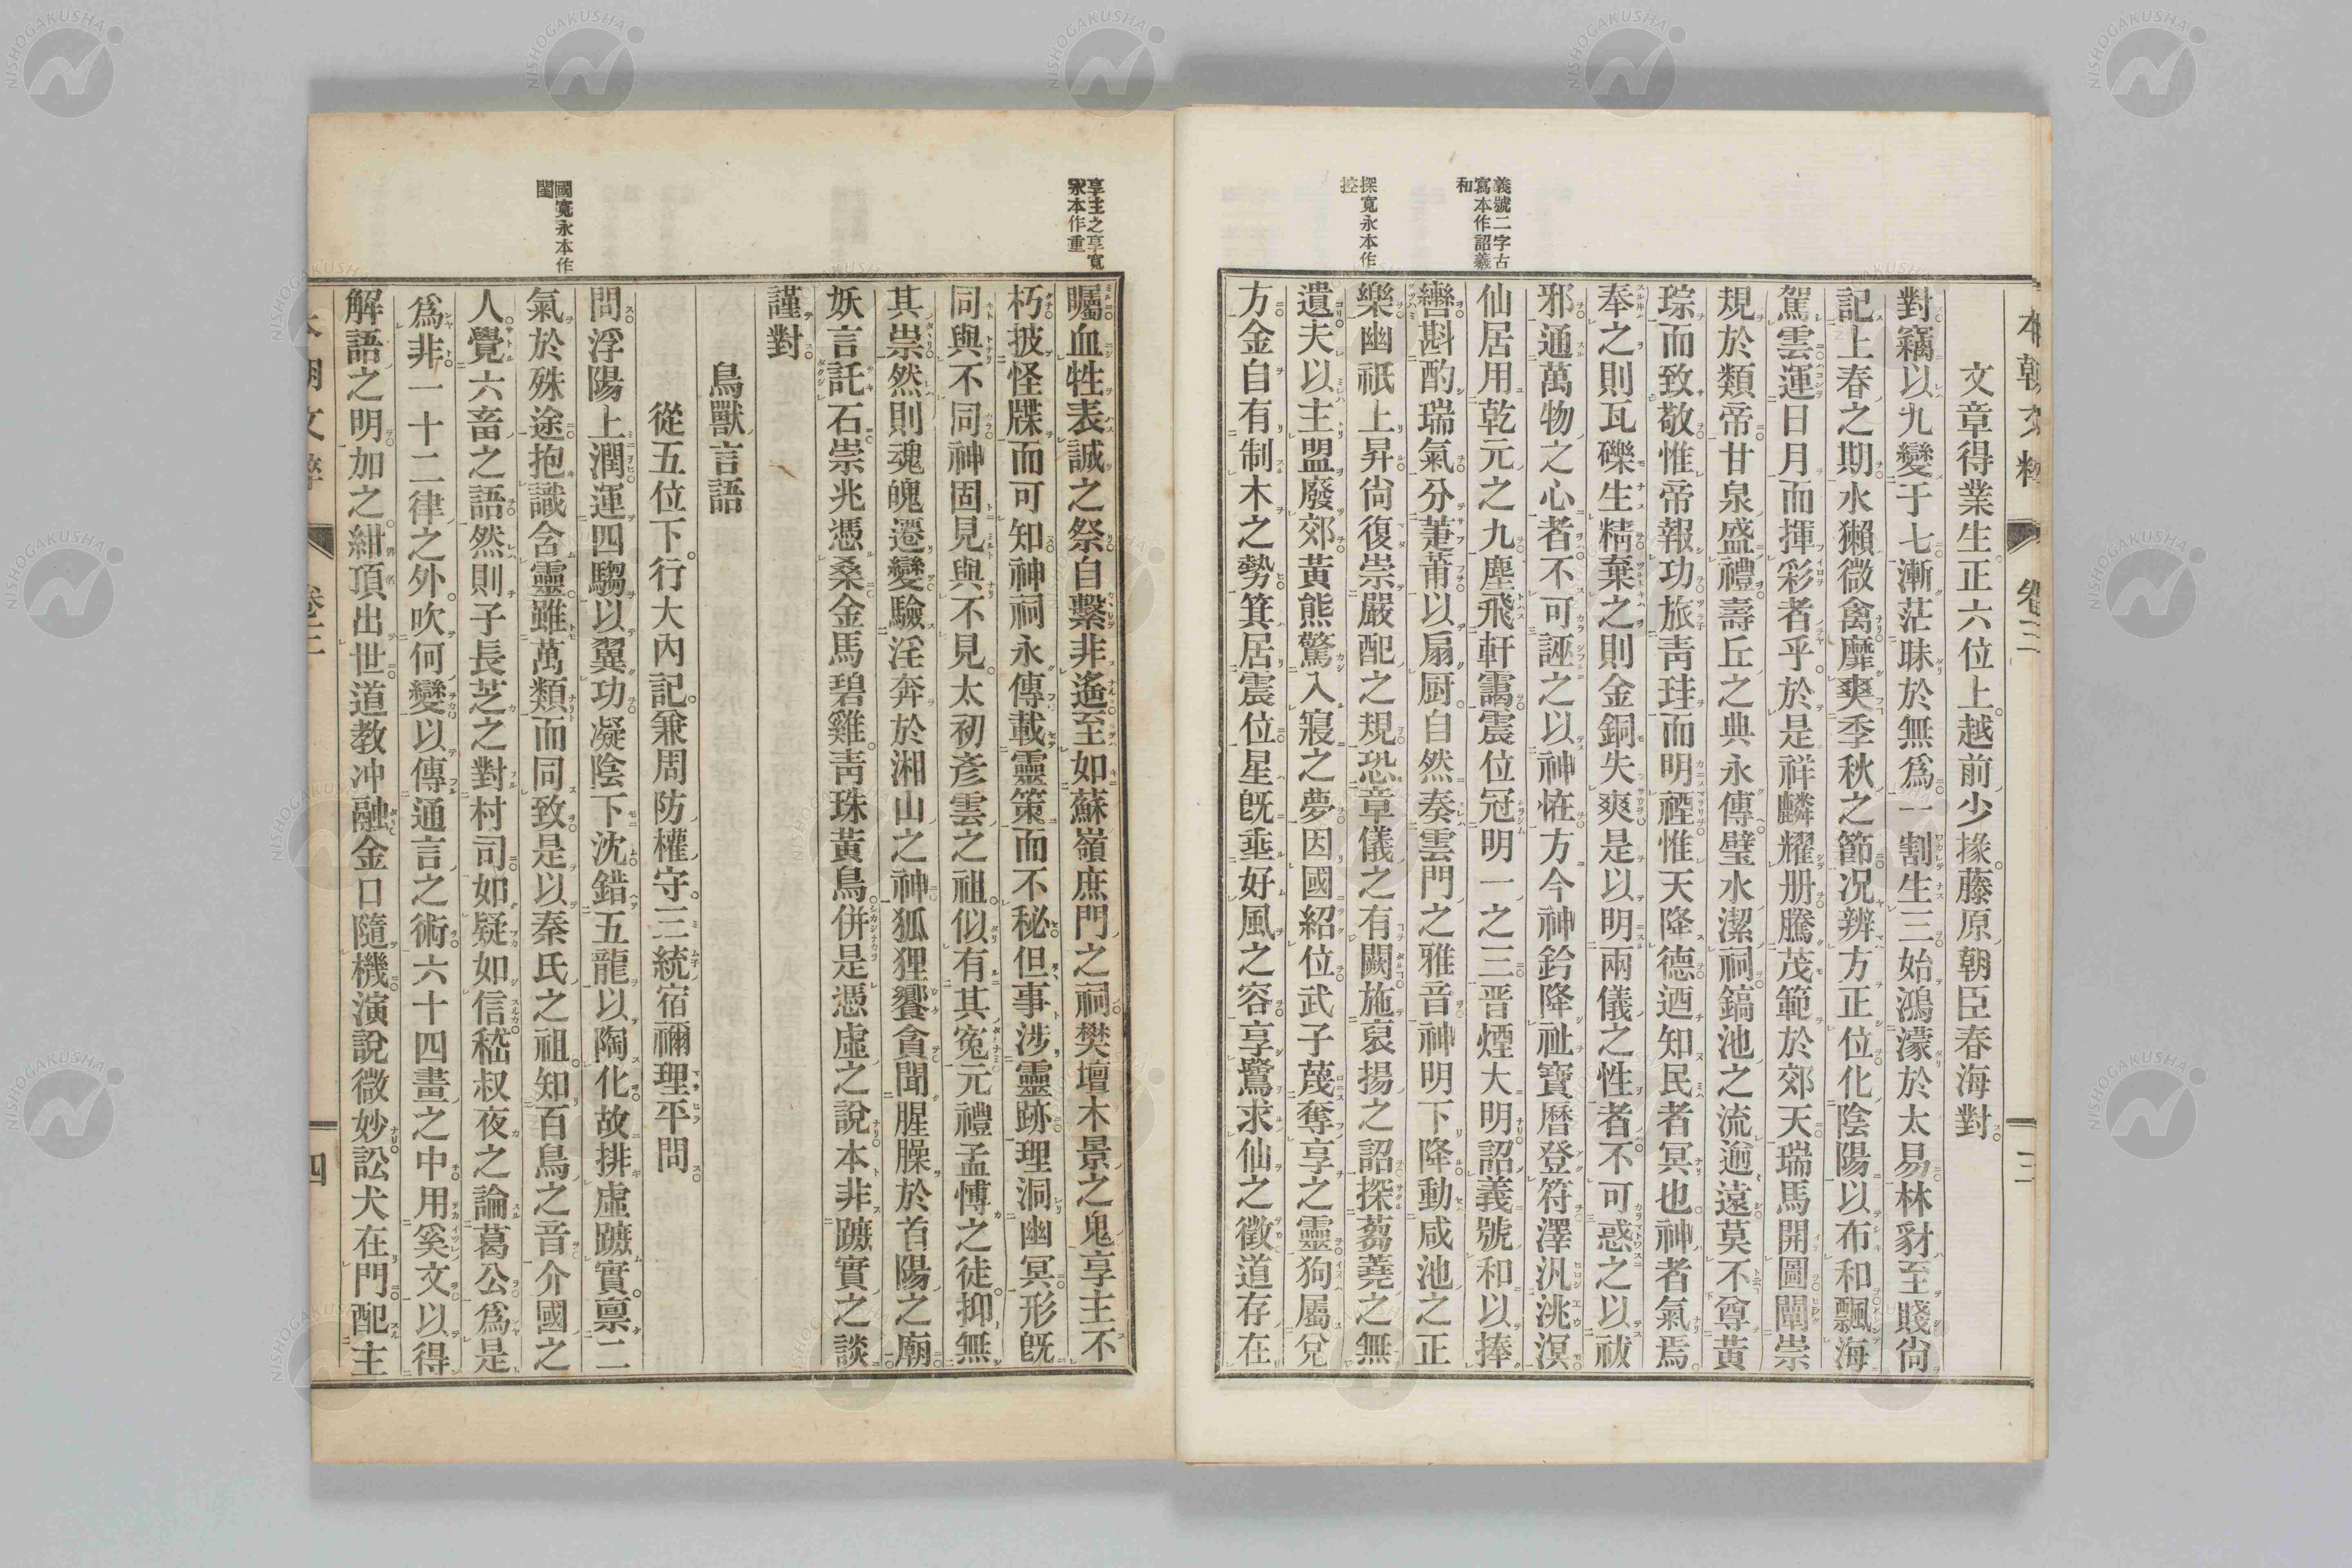 本朝文粹 卷三 三
義號二字古
寫本作詔羲
和
探寬永本作
控
文章得業生正六位上越前少掾藤原朝臣春海對
對竊以九變于七漸茫昧於無爲一割生三始鴻濛於太易林豺至賤尙
記上春之期水獺微禽靡爽季秋之節况辨方正位化陰陽以布和飄海
駕雲運日月而揮彩者乎於是祥麟耀册騰茂範於郊天瑞馬開圖闡崇
規於類帝甘泉盛禮壽丘之典永傳璧水潔祠鎬池之流逾遠莫不尊黃
琮而致敬惟帝報功旅靑珪而明禋惟天降德迺知民者冥也神者氣焉
奉之則瓦礫生精棄之則金銅失爽是以明兩儀之性者不可惑之以祓
邪通萬物之心者不可誣之以神恠方今神鈐降祉寶曆登符澤汎洮溟
仙居用乾元之九塵飛軒靄震位冠明一之三晋煙大明詔義號和以捧
轡斟酌瑞氣分萐莆以扇厨自然奏雲門之雅音神明下降動咸池之正
樂幽祇上昇尙復崇嚴配之規恐章儀之有闕施裒揚之詔探蒭蕘之無
遺夫以主盟廢郊黃熊驚入寢之夢因國紹位武子蔑奪享之靈狗屬兌
方金自有制木之勢箕居震位星旣垂好風之容享鷺求仙之徵道存在
享主之享寬
永本作重
國寬永本作
閨
矚血牲表誠之祭自繫非遙至如蘇嶺庶門之祠樊壇木景之鬼享主不
朽披怪牒而可知神祠永傳載靈策而不秘但事涉靈跡理洞幽冥形旣
同與不同神固見與不見太初彥雲之祖似有其寃元禮孟博之徒抑無
其祟然則魂魄遷變驗淫奔於湘山之神狐狸饗貪聞腥臊於首陽之廟
妖言託石崇兆憑桑金馬碧雞靑珠黃鳥併是憑虛之說本非蹠實之談
謹對
鳥獸言語
從五位下行大內記兼周防權守三統宿禰理平問
問浮陽上潤運四騶以翼功凝陰下沈錯五龍以陶化故排虛蹠實禀二
氣於殊途抱識含靈雖萬類而同致是以秦氏之祖知百鳥之音介國之
人覺六畜之語然則子長芝之對村司如疑如信嵇叔夜之論葛公爲是
爲非一十二律之外吹何變以傳通言之術六十四畫之中用奚文以得
解語之明加之紺頂出世道教冲融金口隨機演說微妙訟犬在門配主
本朝文粹 卷三 四